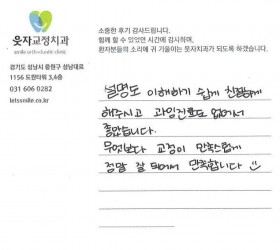 웃자교정치과
smile orthodontic clinic
경기도 성남시 중원구 성남대로
1156 도원타워 3,4층
031 606 0282
letssmile.co.kr
소중한 후기 감사드립니다.
함께 할 수 있었던 시간에 감사하며,
환자분들의 소리에 귀 기울이는 웃자치과가 되도록 하겠습니다.
설명도 이해하기 쉽게 친절하게
해주시고 과잉진료도 없어서
좋았습니다.
무엇보다 교정이 만족스럽게
정말 잘 되어서 만족합니다